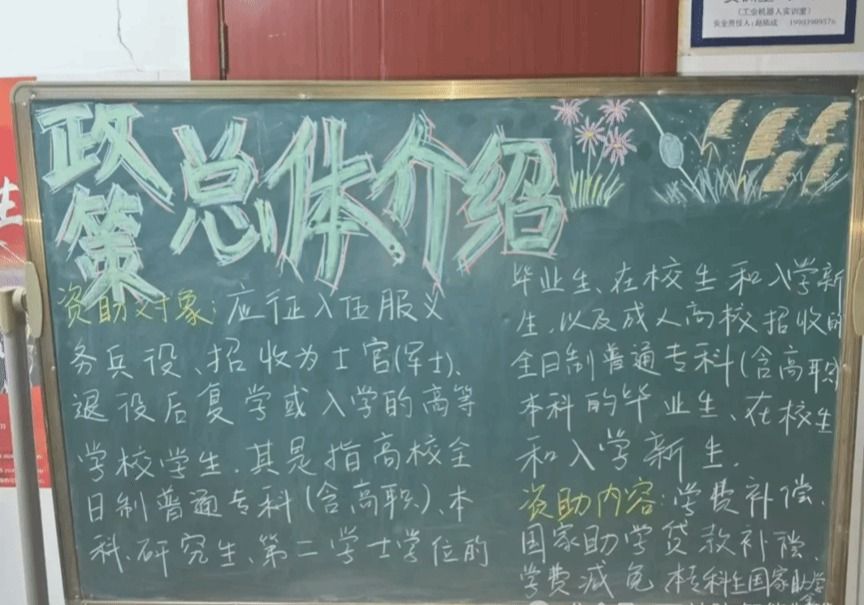 (工业机器人实训室)
生
政策总体介绍
资助对象:应征入伍服义
务兵役、招收为士官(军士)、
退役后复学或入学的高等
学校学生.其是指高校全
日制普通专科(含高职)、本
科、研究生、第二学士学位的
毕业生、在校生和入学新
生,以及成人高校招收的
全日制普通专科(含高职)
本科的毕业生、在校生
和入学新生.
资助内容:学费补偿、
国家助学贷款补偿、
学费减免 本专科生国家助学